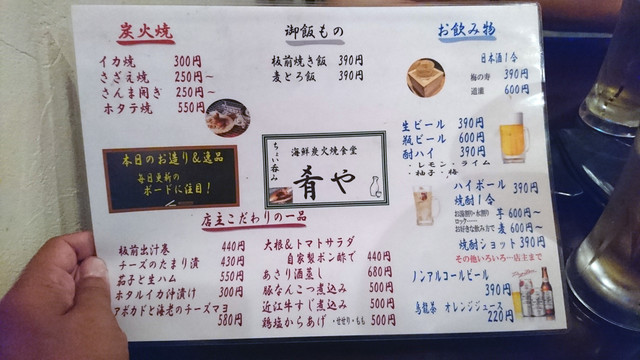 炭火焼
イカ焼 300円
さざえ焼 250円～
さんま開き 250円～
ホタテ焼 550円
御飯もの
板前焼き飯 390円
麦とろ飯 390円
お飲み物
日本酒1合
梅の寿 390円
道灌 600円
生ビール 390円
瓶ビール 600円
酎ハイ 390円
・レモン・ライム
・柚子・梅
ハイボール 390円
焼酎1合
お湯割り・水割り 芋 600円～
ロック…
お好きな飲み方で 麦 600円～
焼酎ショット 390円
その他いろいろ…店主まで
ノンアルコールビール
390円
烏龍茶 オレンジジュース
220円
本日のお造り&逸品
毎日更新の
ボードに注目!
ちょい呑み
海鮮炭火焼食堂
肴や
店主こだわりの一品
板前出汁巻 440円
チーズのたまり漬 430円
茄子と生ハム 550円
ホタルイカ沖漬け 300円
アボカドと海老のチーズマヨ
580円
大根&トマトサラダ
自家製ポン酢で 440円
あさり酒蒸し 680円
豚なんこつ煮込み 500円
近江牛すじ煮込み 500円
鶏塩からあげ ・せせり・もも 500円